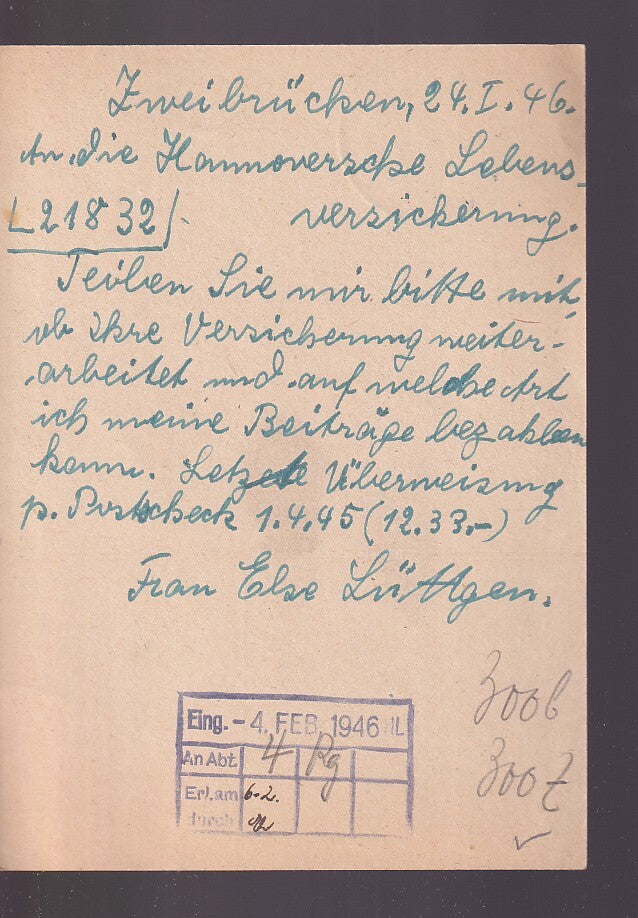 Zweibrücken, 24. I. 46.
An die Hannoversche Lebens-
L 21832 versicherung.
Teilen Sie mir bitte mit,
ob Ihre Versicherung weiter-
arbeitet und auf welche Art
ich meine Beiträge bezahlen
kann. Letzte Überweisung
p. Postscheck 1.4.45 (12.33.-)
Frau Else Lüttgen.
Eing. - 4. FEB. 1946
An Abt. 4 Rg
Erl. am 6.2.
durch